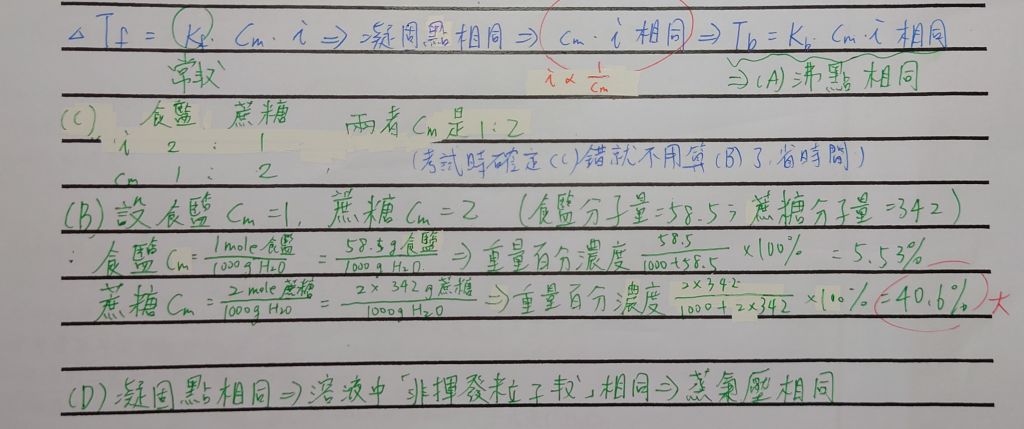 △Tf = Kf · Cm · i ⇒ 凝固點相同 ⇒ Cm · i 相同 ⇒ Tb = Kb · Cm · i 相同
常数 i ∝ 1/Cm ⇒ (A) 沸點相同
(C) 食鹽 蔗糖 兩者 Cm 是 1:2
i 2 : 1 (考試時確定(C)錯就不用算(B)了,省時間)
Cm 1 : 2
(B) 設食鹽 Cm = 1, 蔗糖 Cm = 2 (食鹽分子量 = 58.5; 蔗糖分子量 = 342)
∴ 食鹽 Cm = 1 mole 食鹽/1000g H2O = 58.5g 食鹽/1000g H2O ⇒ 重量百分濃度 58.5/1000+58.5 ×100% = 5.53%
蔗糖 Cm = 2 mole 蔗糖/1000g H2O = 2×342g 蔗糖/1000g H2O ⇒ 重量百分濃度 2×342/1000+2×342 ×100% = 40.6% 大
(D) 凝固點相同 ⇒ 溶液中「非揮發粒子数」相同 ⇒ 蒸氣壓相同